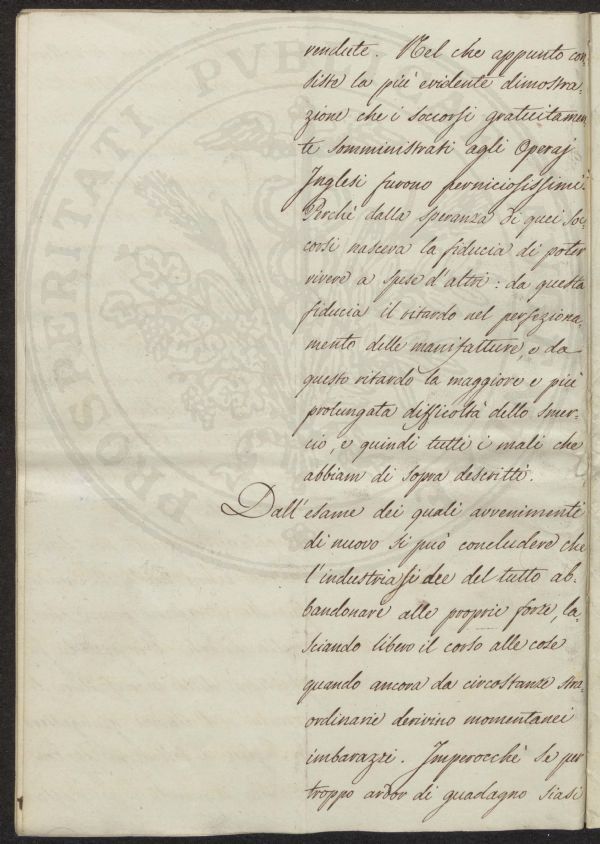 vendute. Nel che appunto con,
siste la più evidente dimostra,
zione che i soccorsi gratuitamen,
te somministrati agli Operaj
Inglesi furono perniciosissimi.
Perchè dalla speranza di quei soc,
corsi nasceva la fiducia di poter
vivere a spese d'altri: da questa
fiducia il ritardo nel perfeziona,
mento delle manifatture, e da
questo ritardo la maggiore e più
prolungata difficoltà dello smer,
cio, e quindi tutti i mali che
abbiam di sopra descritti.
Dall'esame dei quali avvenimenti
di nuovo si può concludere che
l'industria si dee del tutto ab,
bandonare alle proprie forze, la,
sciando libero il corso alle cose
quando ancora da circostanze stra,
ordinarie derivino momentanei
imbarazzi. Imperocchè se per
troppo ardor di guadagno siasi
PROSPERITATI PVB